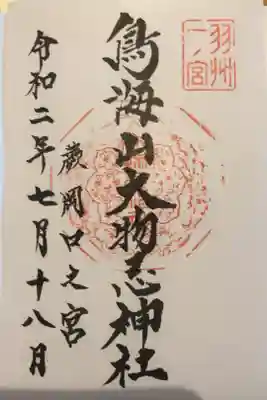 羽州一ノ宮
鳥海山大物忌神社
蕨岡口之宮
令和二年七月十八日